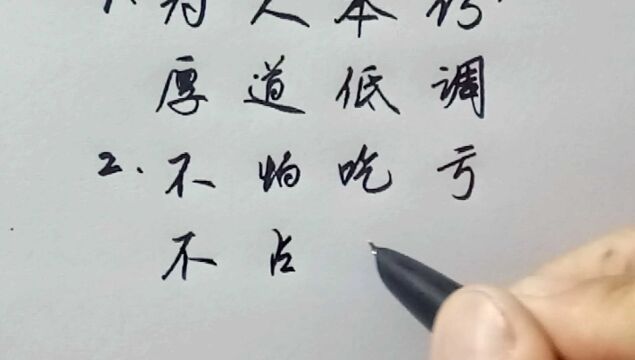 为人本分
厚道低调
2.不怕吃亏
不占